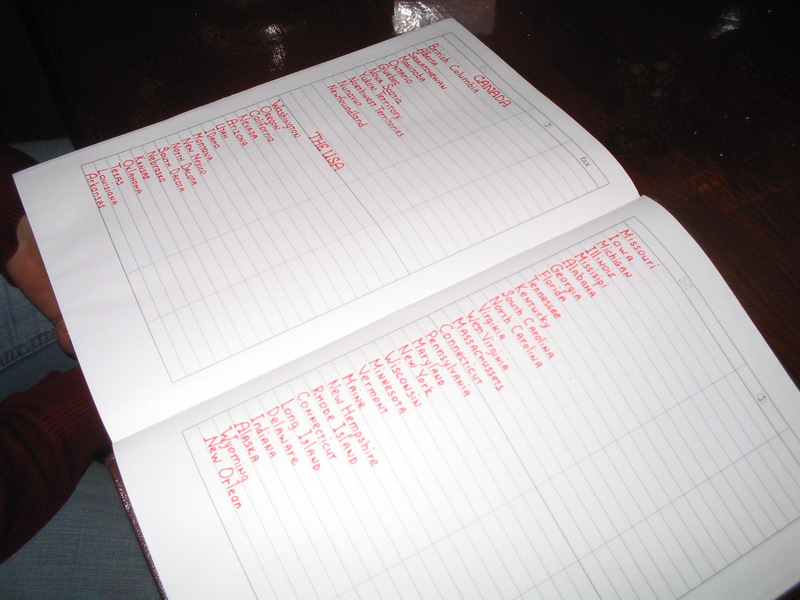 CANADA
British Columbia
Alberta
Saskatchewan
Manitoba
Ontario
Quebec
Nova Scotia
Yukon Territory
Northwest Territories
Nunavut
Newfoundland
THE USA
Washington
Oregon
California
Nevada
Arizona
Utah
Idaho
Montana
New Mexico
North Dakota
South Dakota
Nebraska
Kansas
Oklahoma
Texas
Louisiana
Arkansas
Missouri
Iowa
Michigan
Illinois
Missisipi
Alabama
Georgia
Florida
Tennessee
Kentucky
South Carolina
North Carolina
Virginia
West Virginia
Massachussets
Connecticut
Pennsylvania
Maryland
New York
Wisconsin
Minnesota
Vermont
Maine
New Hempshire
Rhode Island
Connecticut
Long Island
Delaware
Indiana
Alaska
Wyoming
New Orlean